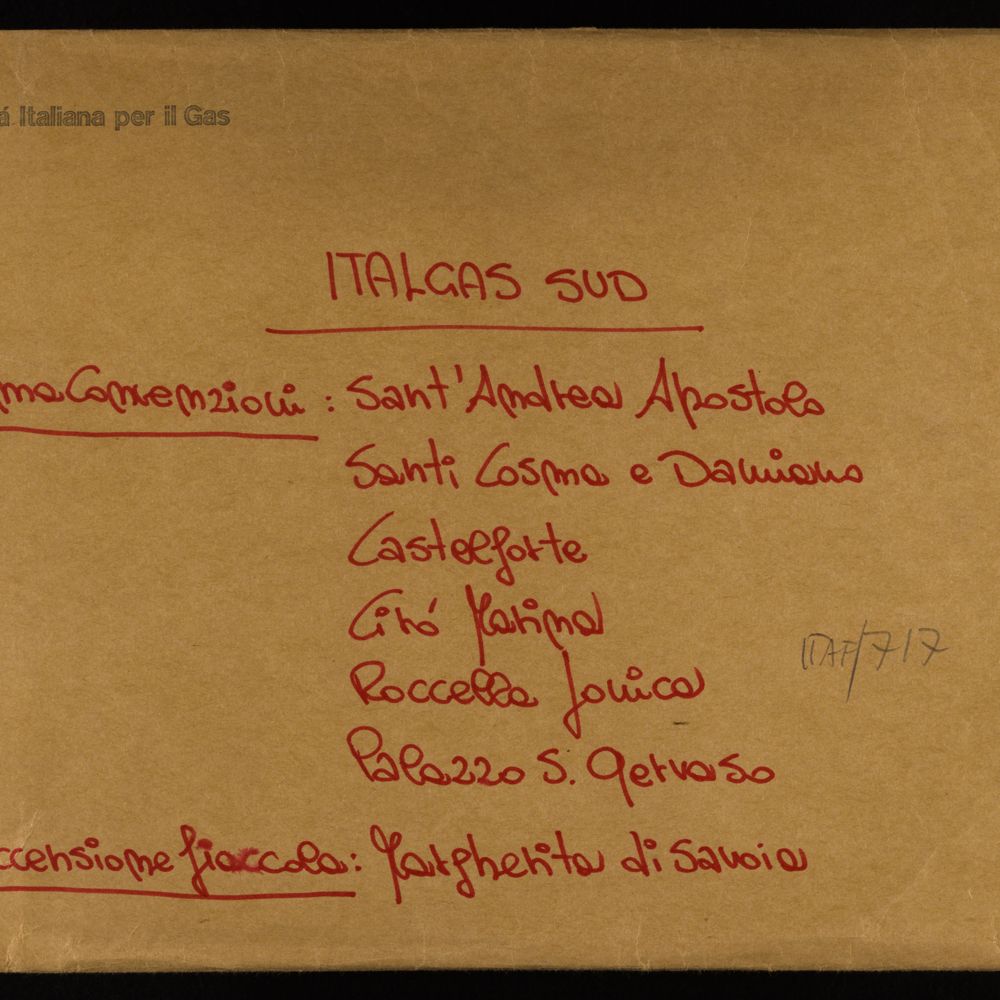 á Italiana per il Gas
ITALGAS SUD
ma Convenzioni : Sant'Andrea Apostolo
Santi Cosma e Damiano
Castelforte
Ciró Marina
Roccella Jonica
ITAF/717
Palazzo S. Gervaso
ccensione fiaccola: Margherita di Savoia